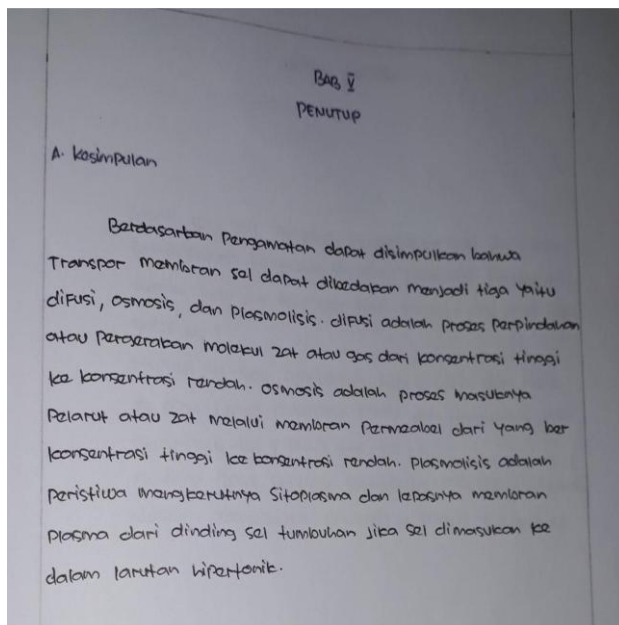 BAB V
PENUTUP
A. Kesimpulan
Berdasarkan Pengamatan dapat disimpulkan bahwa
Transpor membran sel dapat dibedakan menjadi tiga yaitu
difusi, osmosis, dan Plasmolisis. difusi adalah proses perpindahan
atau Pergerakan molekul zat atau gas dari konsentrasi tinggi
ke konsentrasi rendah. osmosis adalah proses masuknya
Pelarut atau zat melalui membran Permeabel dari yang ber
konsentrasi tinggi ke konsentrasi rendah. Plasmolisis adalah
peristiwa mengkerutnya Sitoplasma dan lepasnya membran
Plasma dari dinding sel tumbuhan jika sel dimasukan ke
dalam larutan hipertonik.